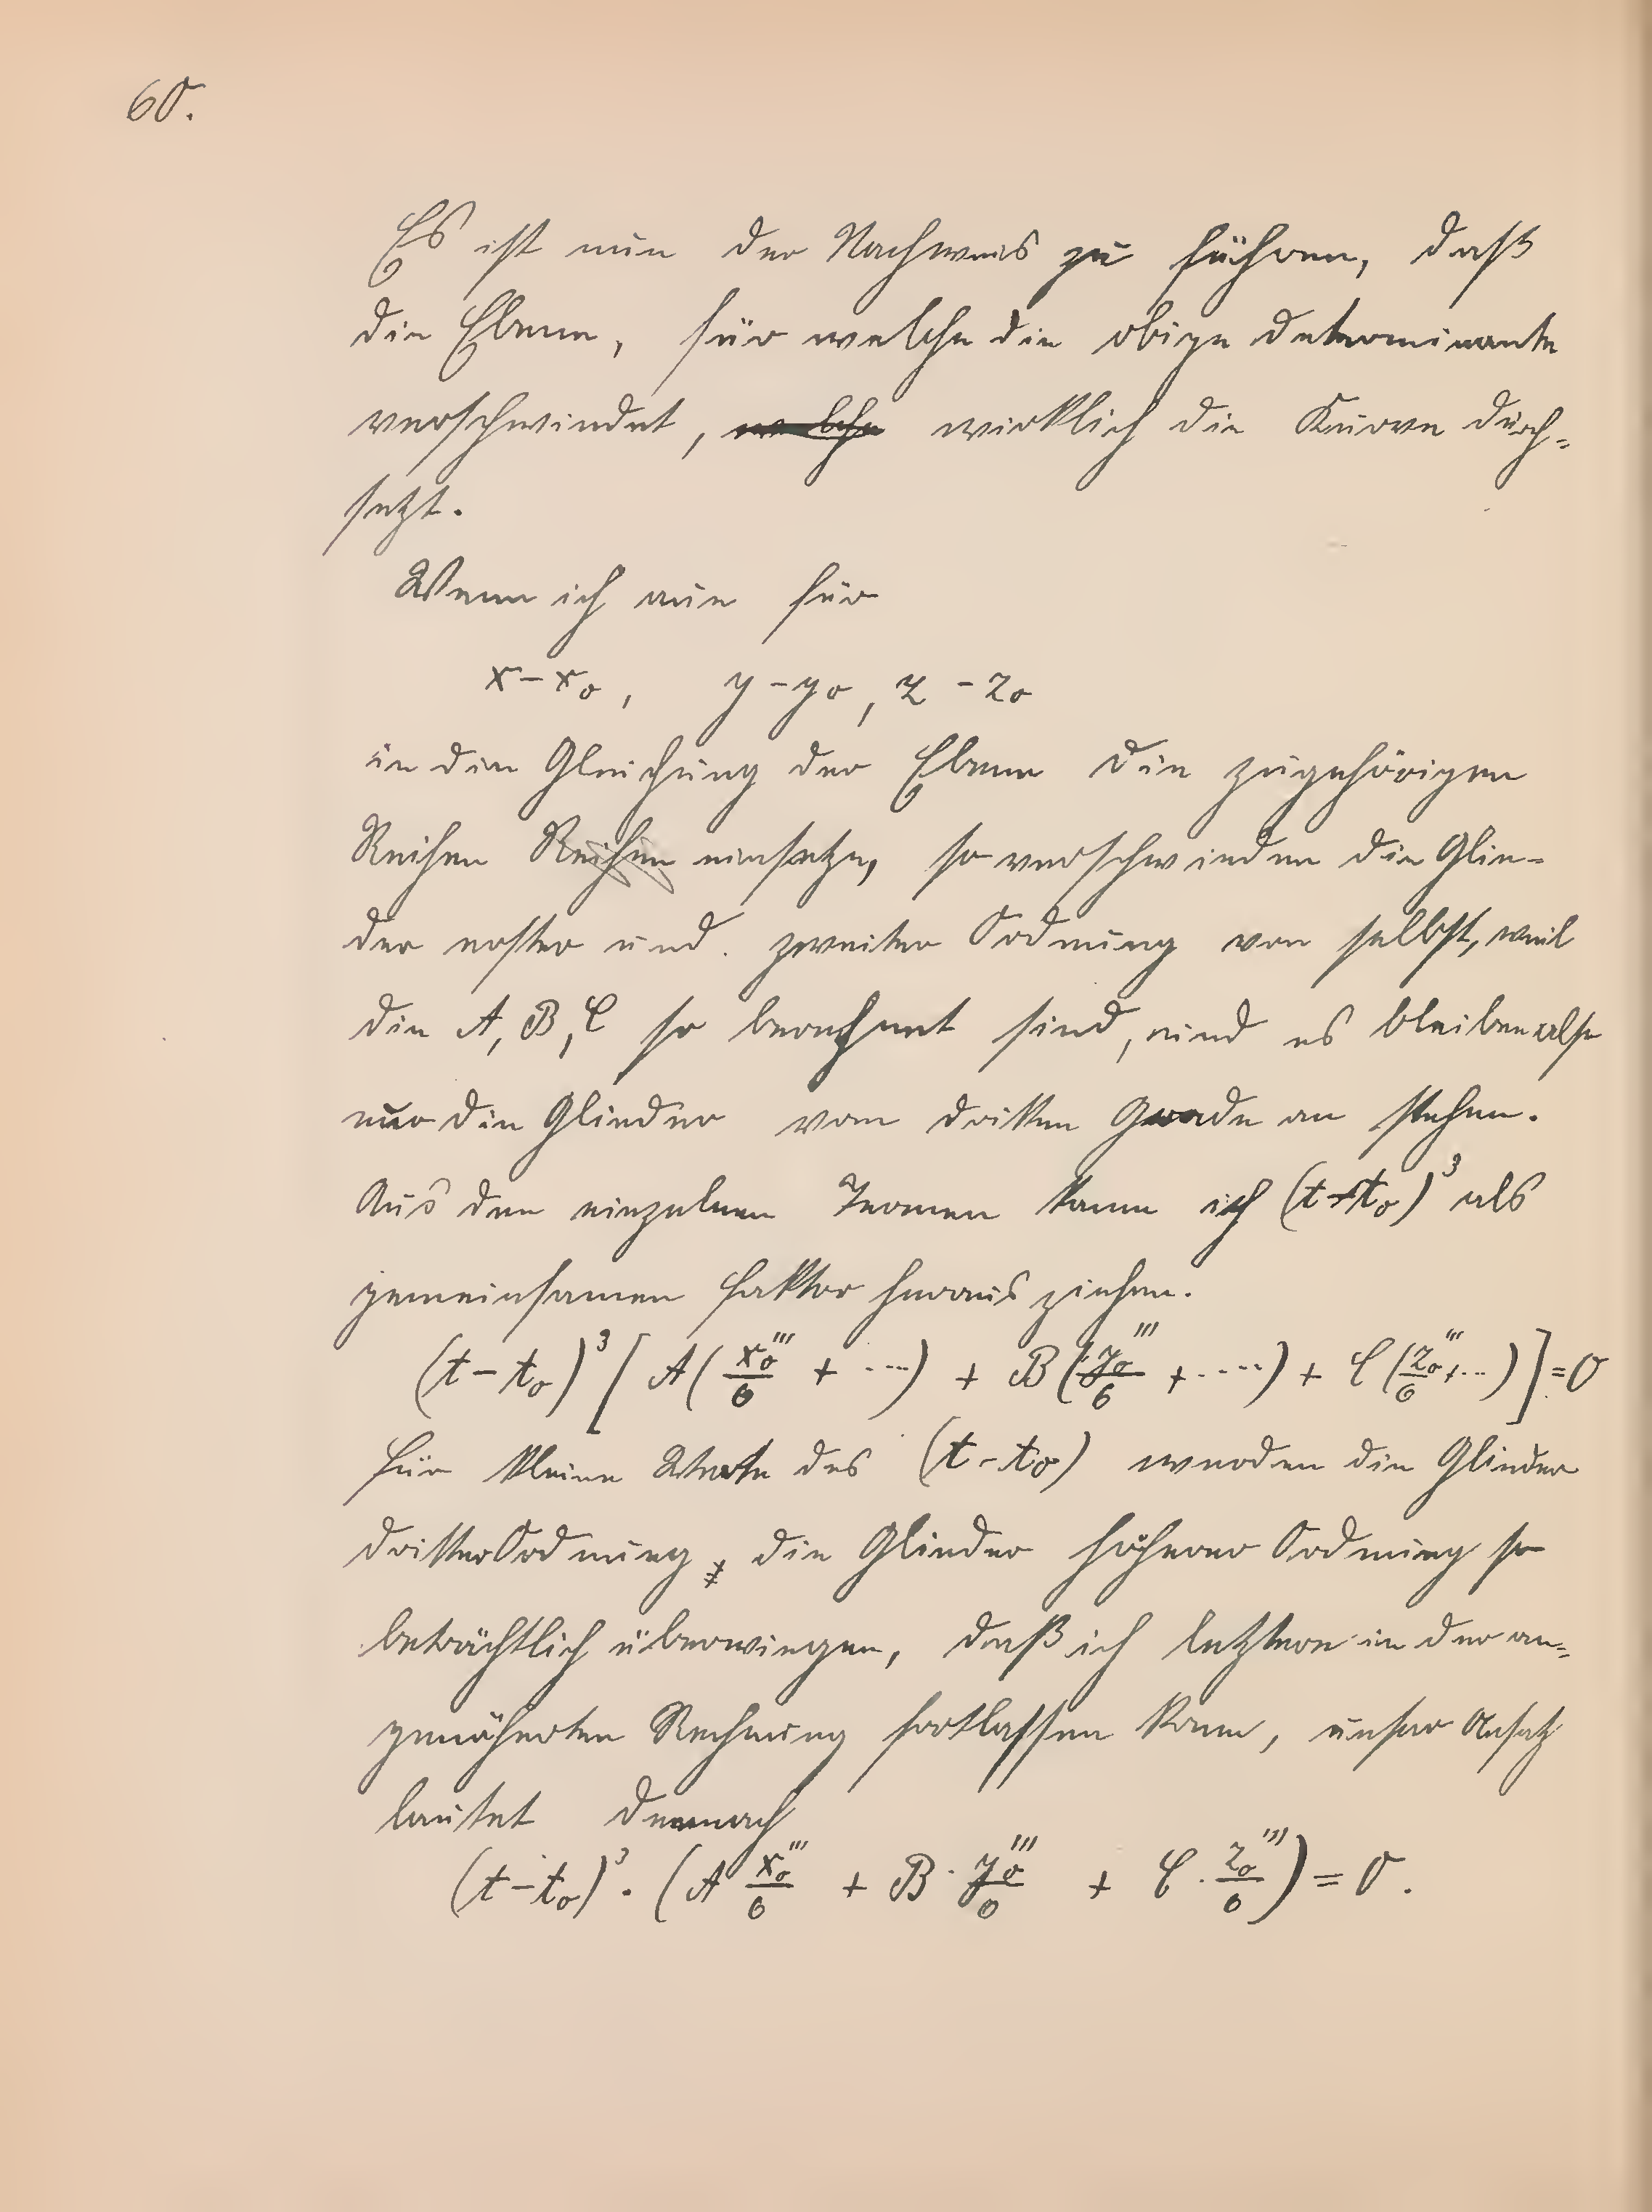 60.
Es ist nun der Nachweis zu führen, daß
die Ebene, für welche die obige Determinante
verschwindet, welche wirklich die Kurve durch=
setzt.
Wenn ich nun für
x-x₀, y-y₀, z-z₀
in die Gleichung der Ebene die zugehörigen
Reihen Reihen einsetze, so verschwinden die Glie-
der erster und zweiter Ordnung von selbst, weil
die A, B, C so berechnet sind, und es bleiben also
nur die Glieder vom dritten Grade an stehen.
Aus den einzelnen Termen kann ich (t-t₀)³ als
gemeinsamen Faktor heraus ziehen.
(t-t₀)³ [A(x₀'''/6 + ....) + B(y₀'''/6 + ....) + C(z₀'''/6 + ...)] = 0
Für kleine Werte des (t-t₀) werden die Glieder
dritter Ordnung, die Glieder höherer Ordnung so
beträchtlich überwiegen, daß ich letztere in der an=
genäherten Rechnung fortlassen kann, unser Ansatz
lautet demnach
(t-t₀)³ · (A x₀'''/6 + B · y₀'''/6 + C · z₀'''/6) = 0.